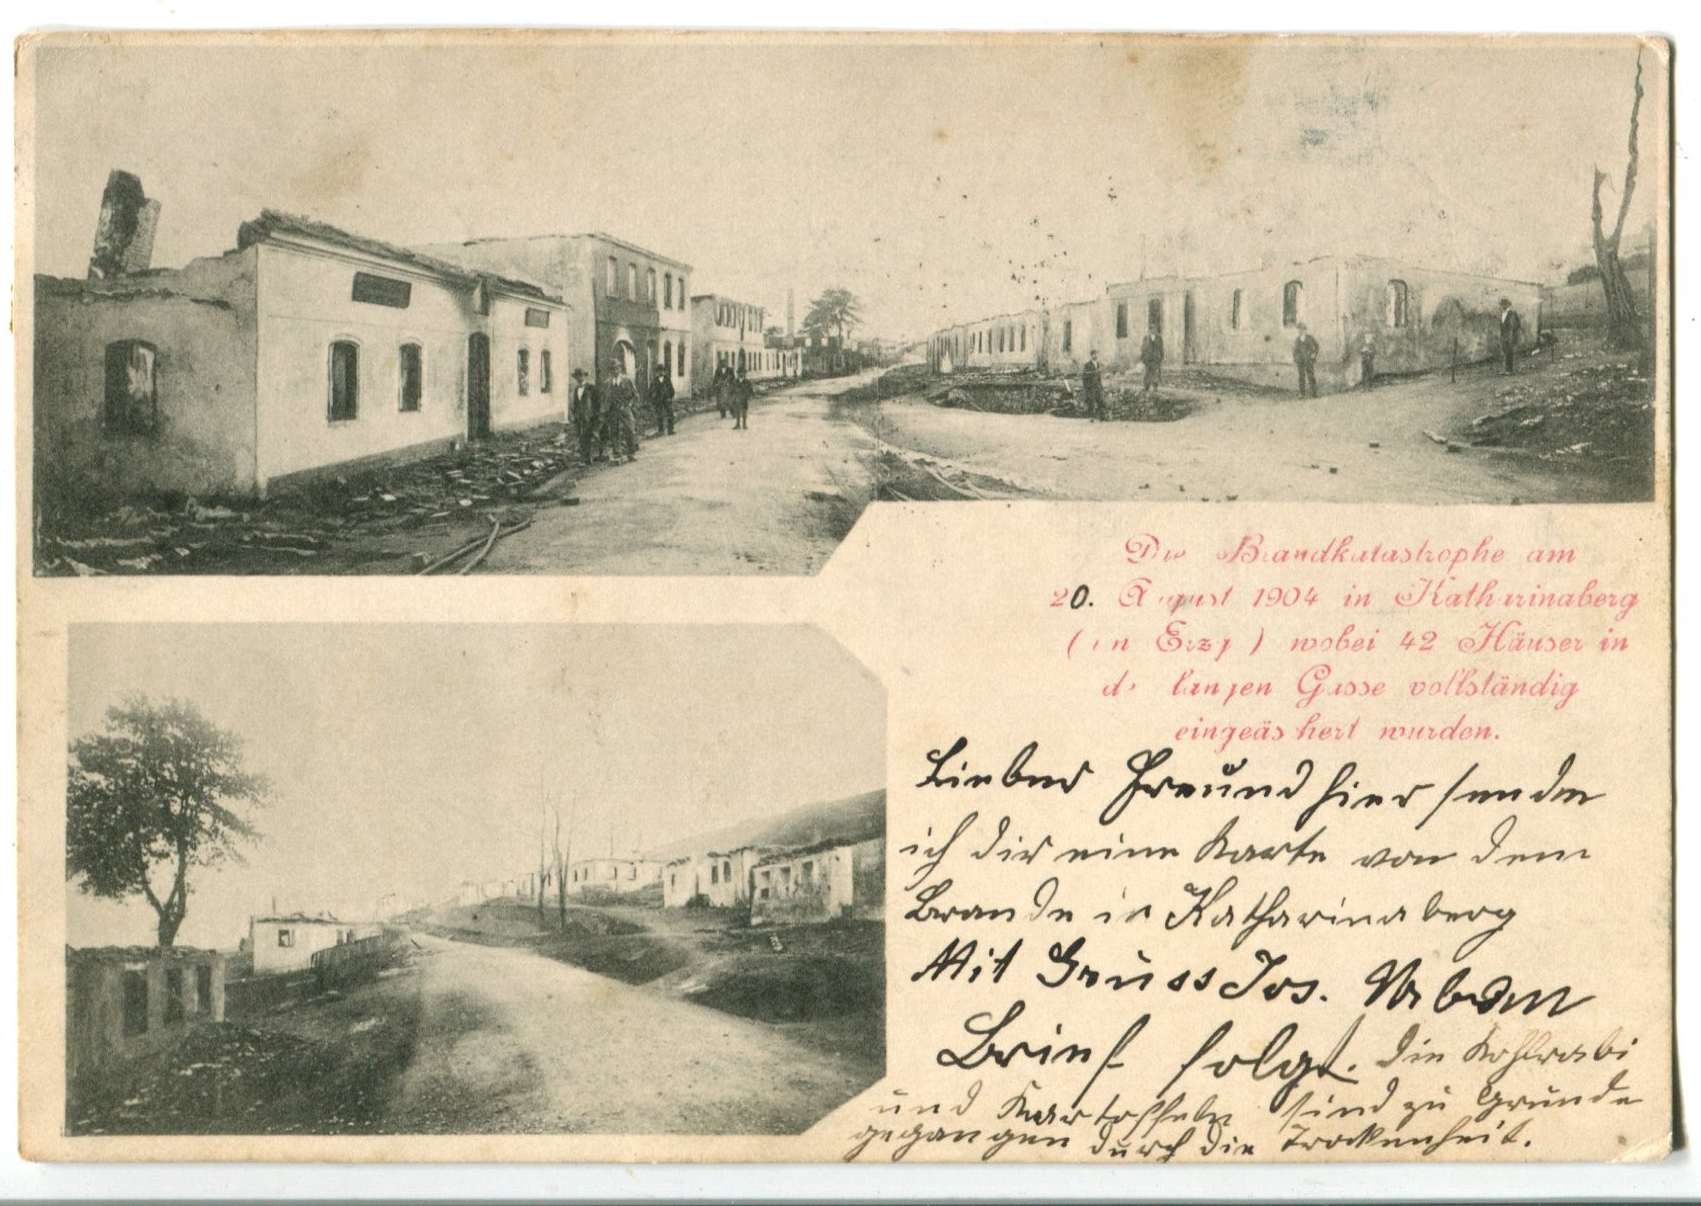 Die Brandkatastrophe am
20. August 1904 in Katharinaberg
(im Erzg) wobei 42 Häuser in
der langen Gasse vollständig
eingeäschert wurden.
Lieber Freund hier sende
ich dir eine Karte von dem
Brande in Katharinaberg
Mit Gruss Jos.
Brief folgt. Die Kohlrabi
und Kartoffeln sind zu Grunde
gegangen durch die Trockenheit.